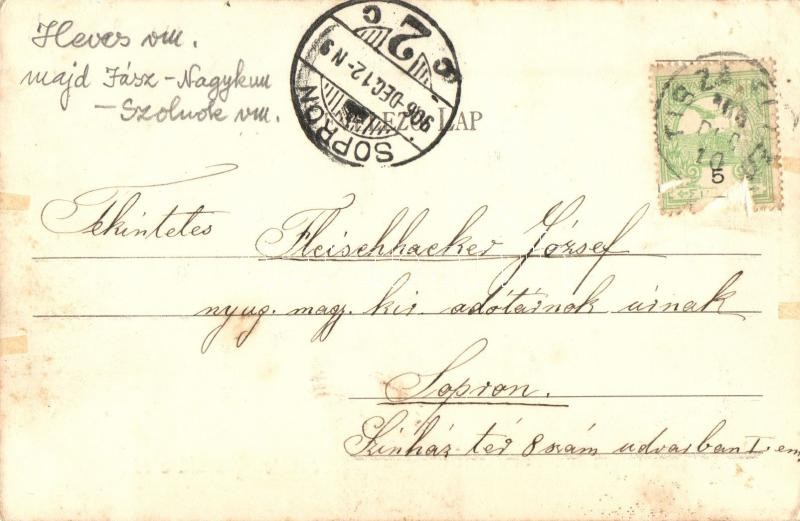 Heves vm.
majd Jász-Nagykun
-Szolnok vm.
SOPRON
906-DEC.12-N9
2
C
LAP
TISZA
906
DEC
10
5
Tekintetes Fleischhacker József
nyug. magy. kir. adótárnok úrnak
Sopron.
Színház tér 8 szám udvarban I. em.